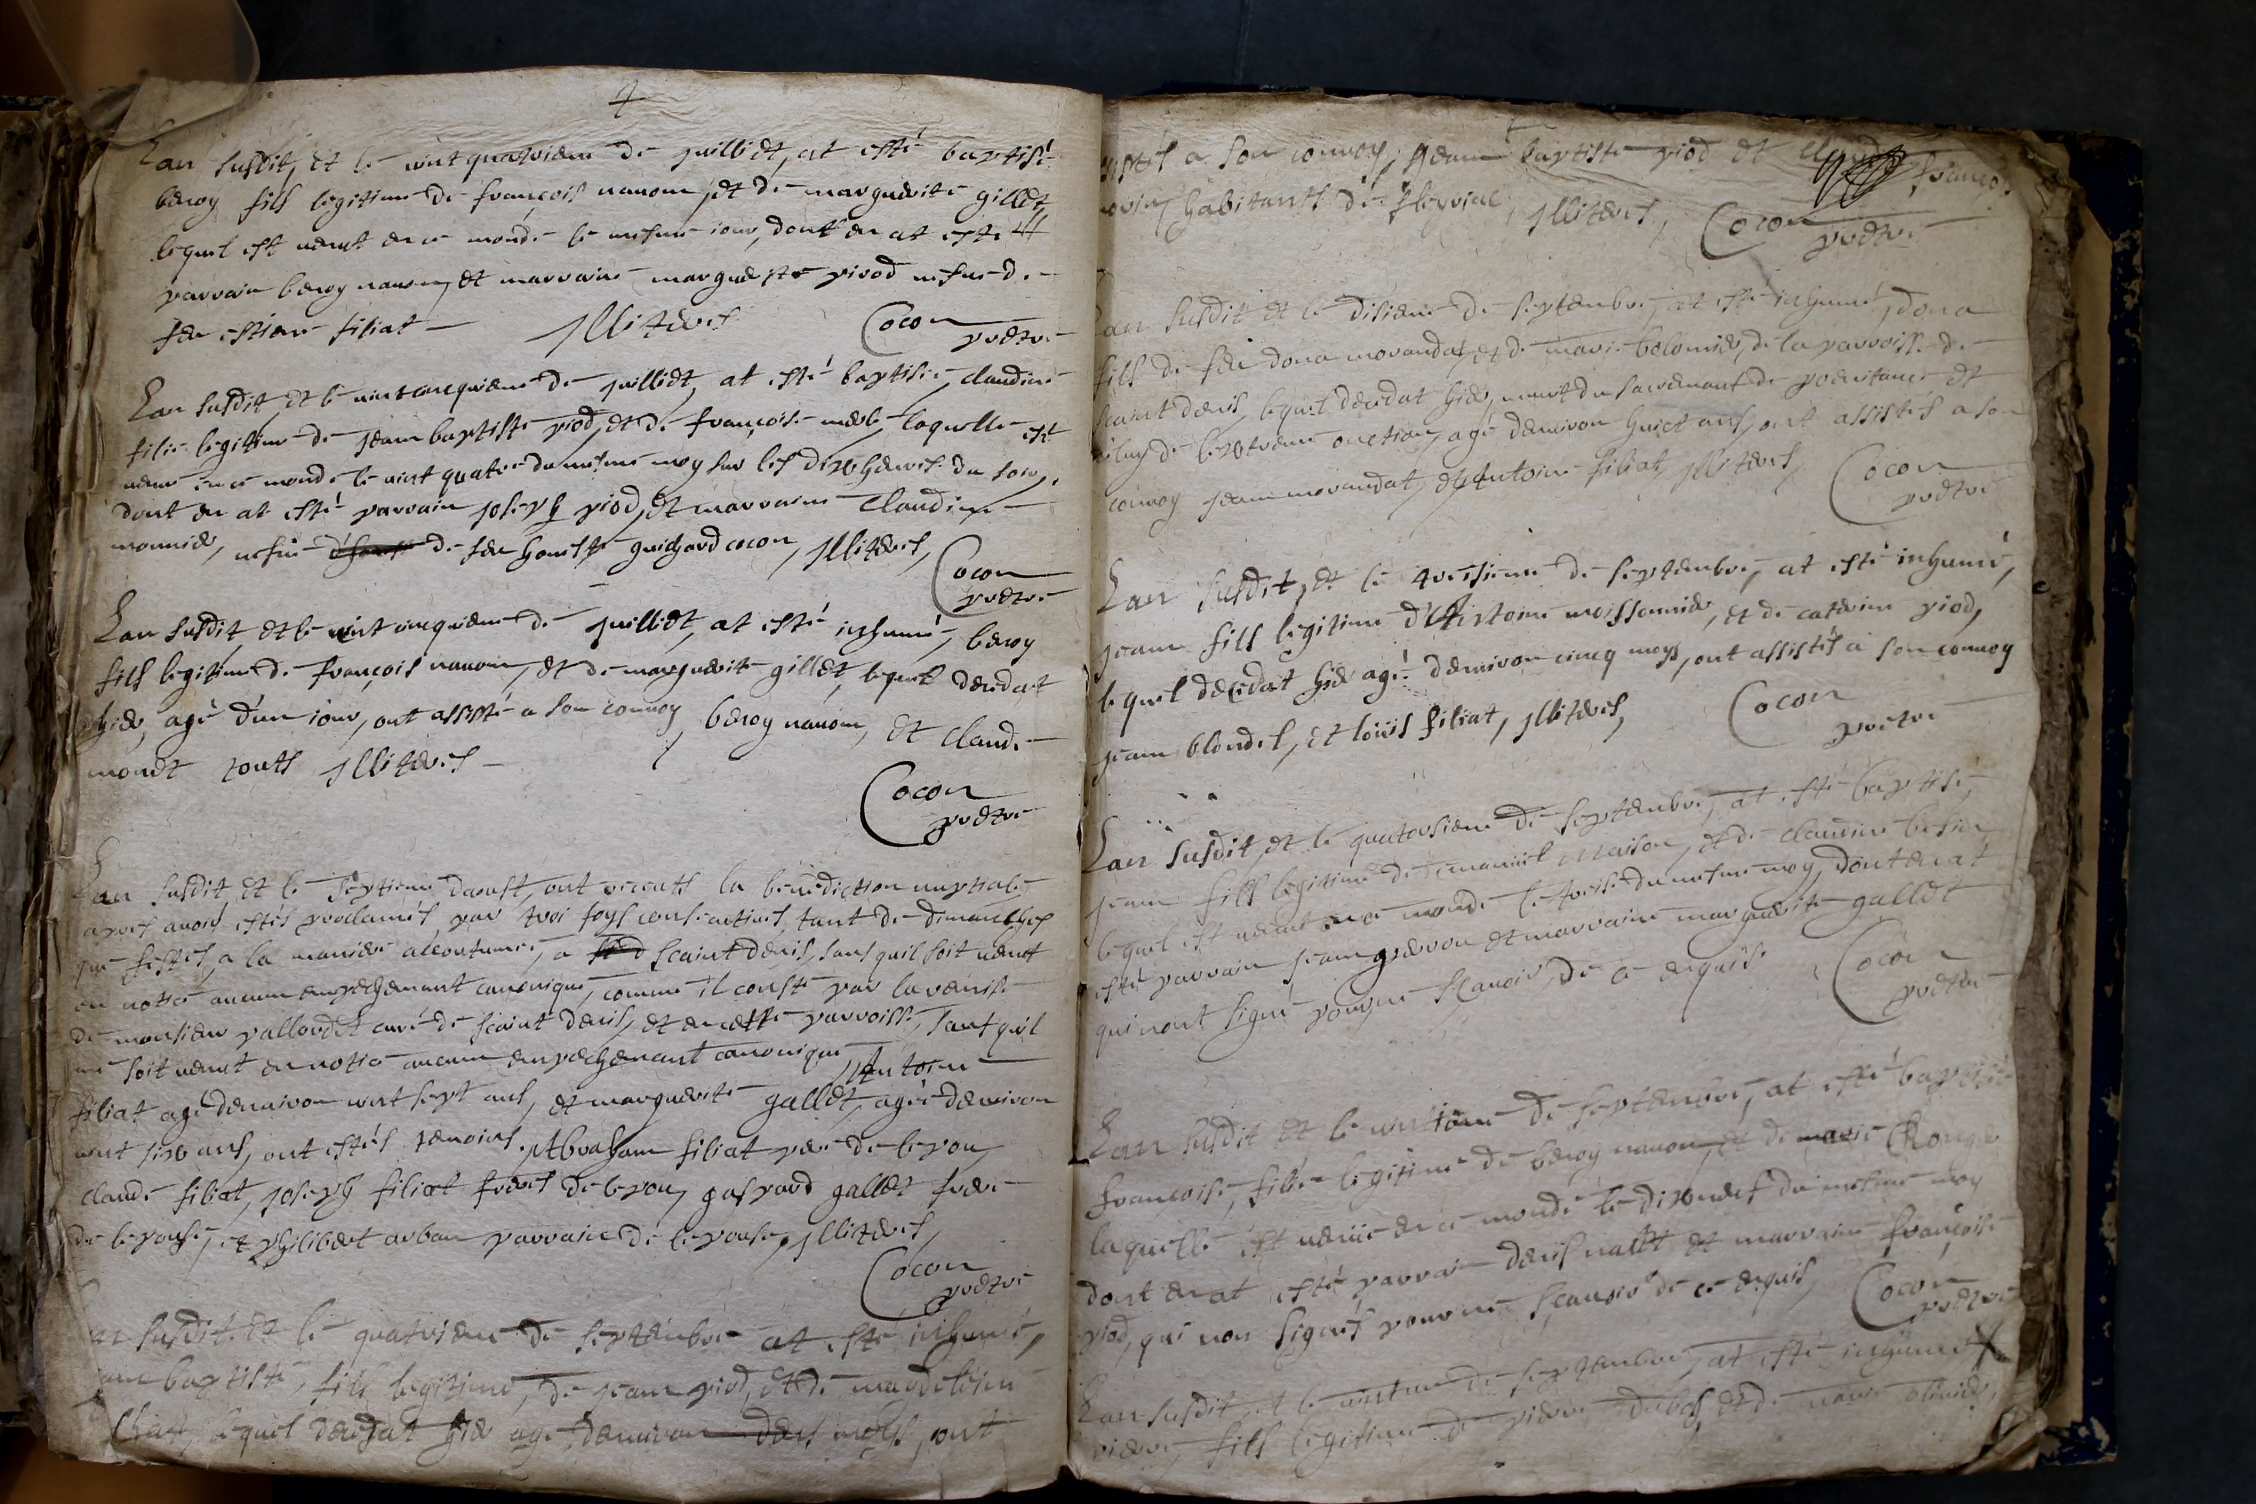 Lan susdit, et le vint quatrieme de juilliet, at esté baptisé
benoy fils legitime de françois nanom, et de marguerite gillet,
lequel est venut en ce monde le mesme iour, dont en at esté
parrain benoy nanom, et marraine marguerite pirod vefue de
feu estiene filiat — Jllitères Cocon
prêtre
Lan susdit, et le vint cinquieme de juilliet, at esté baptisée, claudine
fille legitime de jean baptiste piod, et de françoise merle, laquelle est
venue en ce monde le vint quatre du mesme moy sur les dix heures du soir,
dont en at esté parrain joseph piod, et marraine Claudine
monnier, vefue de feu honeste guichard cocon, Jllitères,
Cocon
prêtre
Lan susdit, et le vint cinquieme de juilliet, at esté inhumé, benoy
fils legitime de françois nanom, et de marguerite gillet, lequel decedat
hier, agé d'un iour, ont assisté a son convoy benoy nanom, et claude
monet touts Jllitères —
Cocon
prêtre
Lan susdit, et le septieme daoust, ont receuts la benediction nuptiale,
apres avoir estés proclamés, par troi foys consecutives, tant de dimanches
que festes, a la maniere accoutumée, a scaint denis, sans quil soit venut
en notice aucun empechement canonique, comme il conste par la remise
de monsieur pallordet curé de scaint denis, et en cette parroisse, sans quil
ne soit venut en notice aucun empechement canonique, Antoine
filiat agé denviron vint sept ans, et marguerite gallet, agée denviron
vint six ans, ont estés temoins, Abraham filiat pere de lepoux,
claude filiat, joseph filiat freres de lepoux, gaspard gallet frere
de lepouse, et philibert arban parrain de lepouse, Jllitères,
Cocon
prêtre
an susdit, et le quatrieme de septembre at esté inhumé,
jean baptiste, fils legitime, de jean piod, et de magdeleine
lequel decedat hier agé denviron deux moys, ont
assistés a son convoy, jean baptiste piod et claude françois
habitants de Jllitères, Cocon
prêtre
Lan susdit et le disieme de septembre, at esté inhumé, dona
fils de feu dona morandat, et de marie bolomier, de la parroisse de
scaint denis, lequel decedat hier, munit du sacremant de penitance et
celuy de lextreme onction, agé denviron huict ans, ont assistés a son
convoy jean morandat, et Antoine filiat, Jllitères, Cocon
prêtre
Lan susdit, et le treisieme de septembre, at esté inhumé,
jean fils legitime d'Antoine moissonnier, et de caterine piod,
lequel decedat hier agé denviron cinq moys, ont assistés a son convoy
jean blondel, et loüis filiat, Jllitères, Cocon
prêtre
Lan susdit, et le quatorsieme de septembre, at esté baptisé,
jean fils legitime de emanuel maison, et de claudine
lequel est venut en ce monde le treise du mesme moy, dont en at
esté parrain jean perron et marraine marguerite gallet
qui nont signé pour ne scavoir, de ce enquis Cocon
prêtre
Lan susdit et le vintieme de septembre, at esté baptisée
francoise, fille legitime de benoy nanom, et de marie
laquelle est venüe en ce monde le dixneuf du mesme moy
dont en at esté parrain denis nallet et marraine françoise
piod, qui non signés pour ne scavoir de ce enquis, Cocon
prêtre
Lan susdit, et le vintune de septembre, at esté inhumé
pierre, fils legitime de pierre dubos, et de